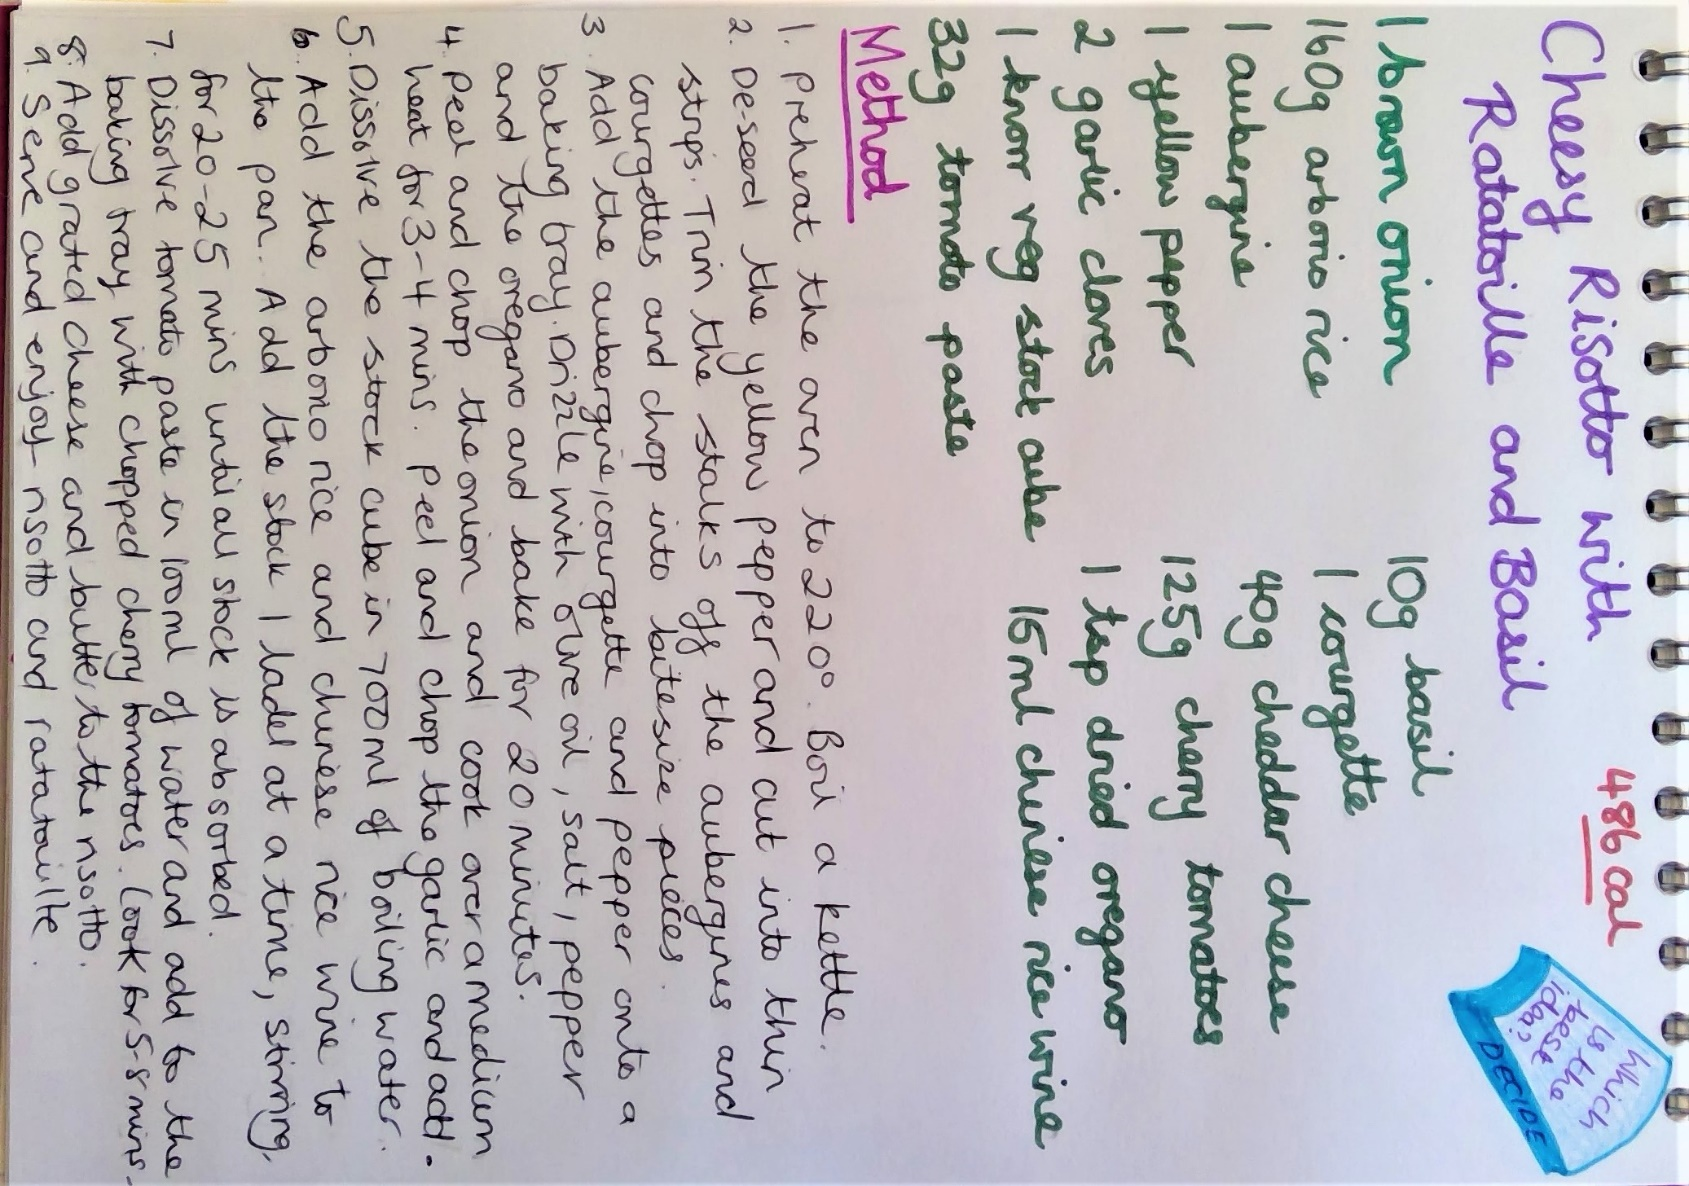 Cheesy Risotto with
Ratatoille and Basil
486 cal
Which
is the
bese
idea?
DECIDE
1 brown onion
160g arborio rice
1 aubergine
1 yellow pepper
2 garlic cloves
1 knorr veg stock cube
32g tomato paste
10g basil
1 courgette
40g cheddar cheese
125g cherry tomatoes
1 tsp dried oregano
15ml chinese rice wine
Method
1. Preheat the oven to 220°. Boil a kettle.
2. De-seed the yellow pepper and cut into thin
strips. Trim the stalks off the aubergines and
courgettes and chop into bitesize pieces.
3. Add the aubergine, courgette and pepper onto a
baking tray. Drizzle with olive oil, salt, pepper
and the oregano and bake for 20 minutes.
4. Peel and chop the onion and cook over a medium
heat for 3-4 mins. Peel and chop the garlic and add.
5. Dissolve the stock cube in 700ml of boiling water.
6. Add the arborio rice and chinese rice wine to
the pan. Add the stock 1 ladel at a time, stirring,
for 20-25 mins until all stock is absorbed.
7. Dissolve tomato paste in 100ml of water and add to the
baking tray with chopped cherry tomatoes. Cook for 5-8 mins.
8. Add grated cheese and butter to the risotto.
9. Serve and enjoy risotto and ratatouille.